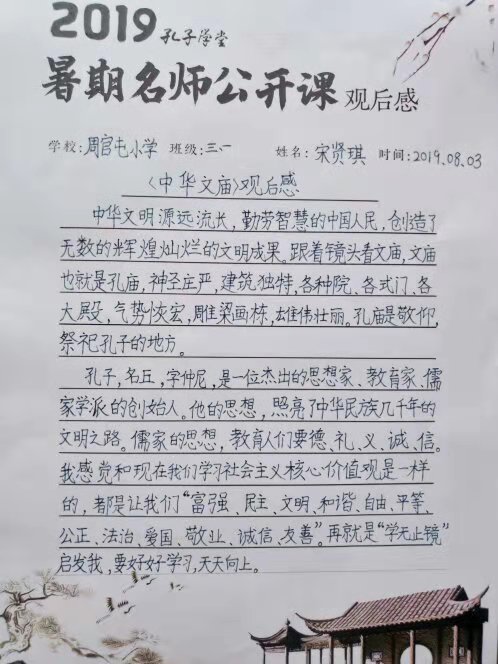 2019 孔子学堂
暑期名师公开课 观后感
学校:周官屯小学 班级:三.一 姓名:宋贤琪 时间:2019.08.03
《中华文庙》观后感
中华文明源远流长，勤劳智慧的中国人民，创造了
无数的辉煌灿烂的文明成果。跟着镜头看文庙，文庙
也就是孔庙，神圣庄严，建筑独特，各种院、各式门、各
大殿，气势恢宏，雕梁画栋，雄伟壮丽。孔庙是敬仰，
祭祀孔子的地方。
孔子，名丘，字仲尼，是一位杰出的思想家、教育家、儒
家学派的创始人。他的思想，照亮了中华民族几千年的
文明之路。儒家的思想，教育人们要德、礼、义、诚、信。
我感觉和现在我们学习社会主义核心价值观是一样
的，都是让我们“富强、民主、文明、和谐、自由、平等、
公正、法治、爱国、敬业、诚信、友善”。再就是“学无止镜”
启发我，要好好学习，天天向上。